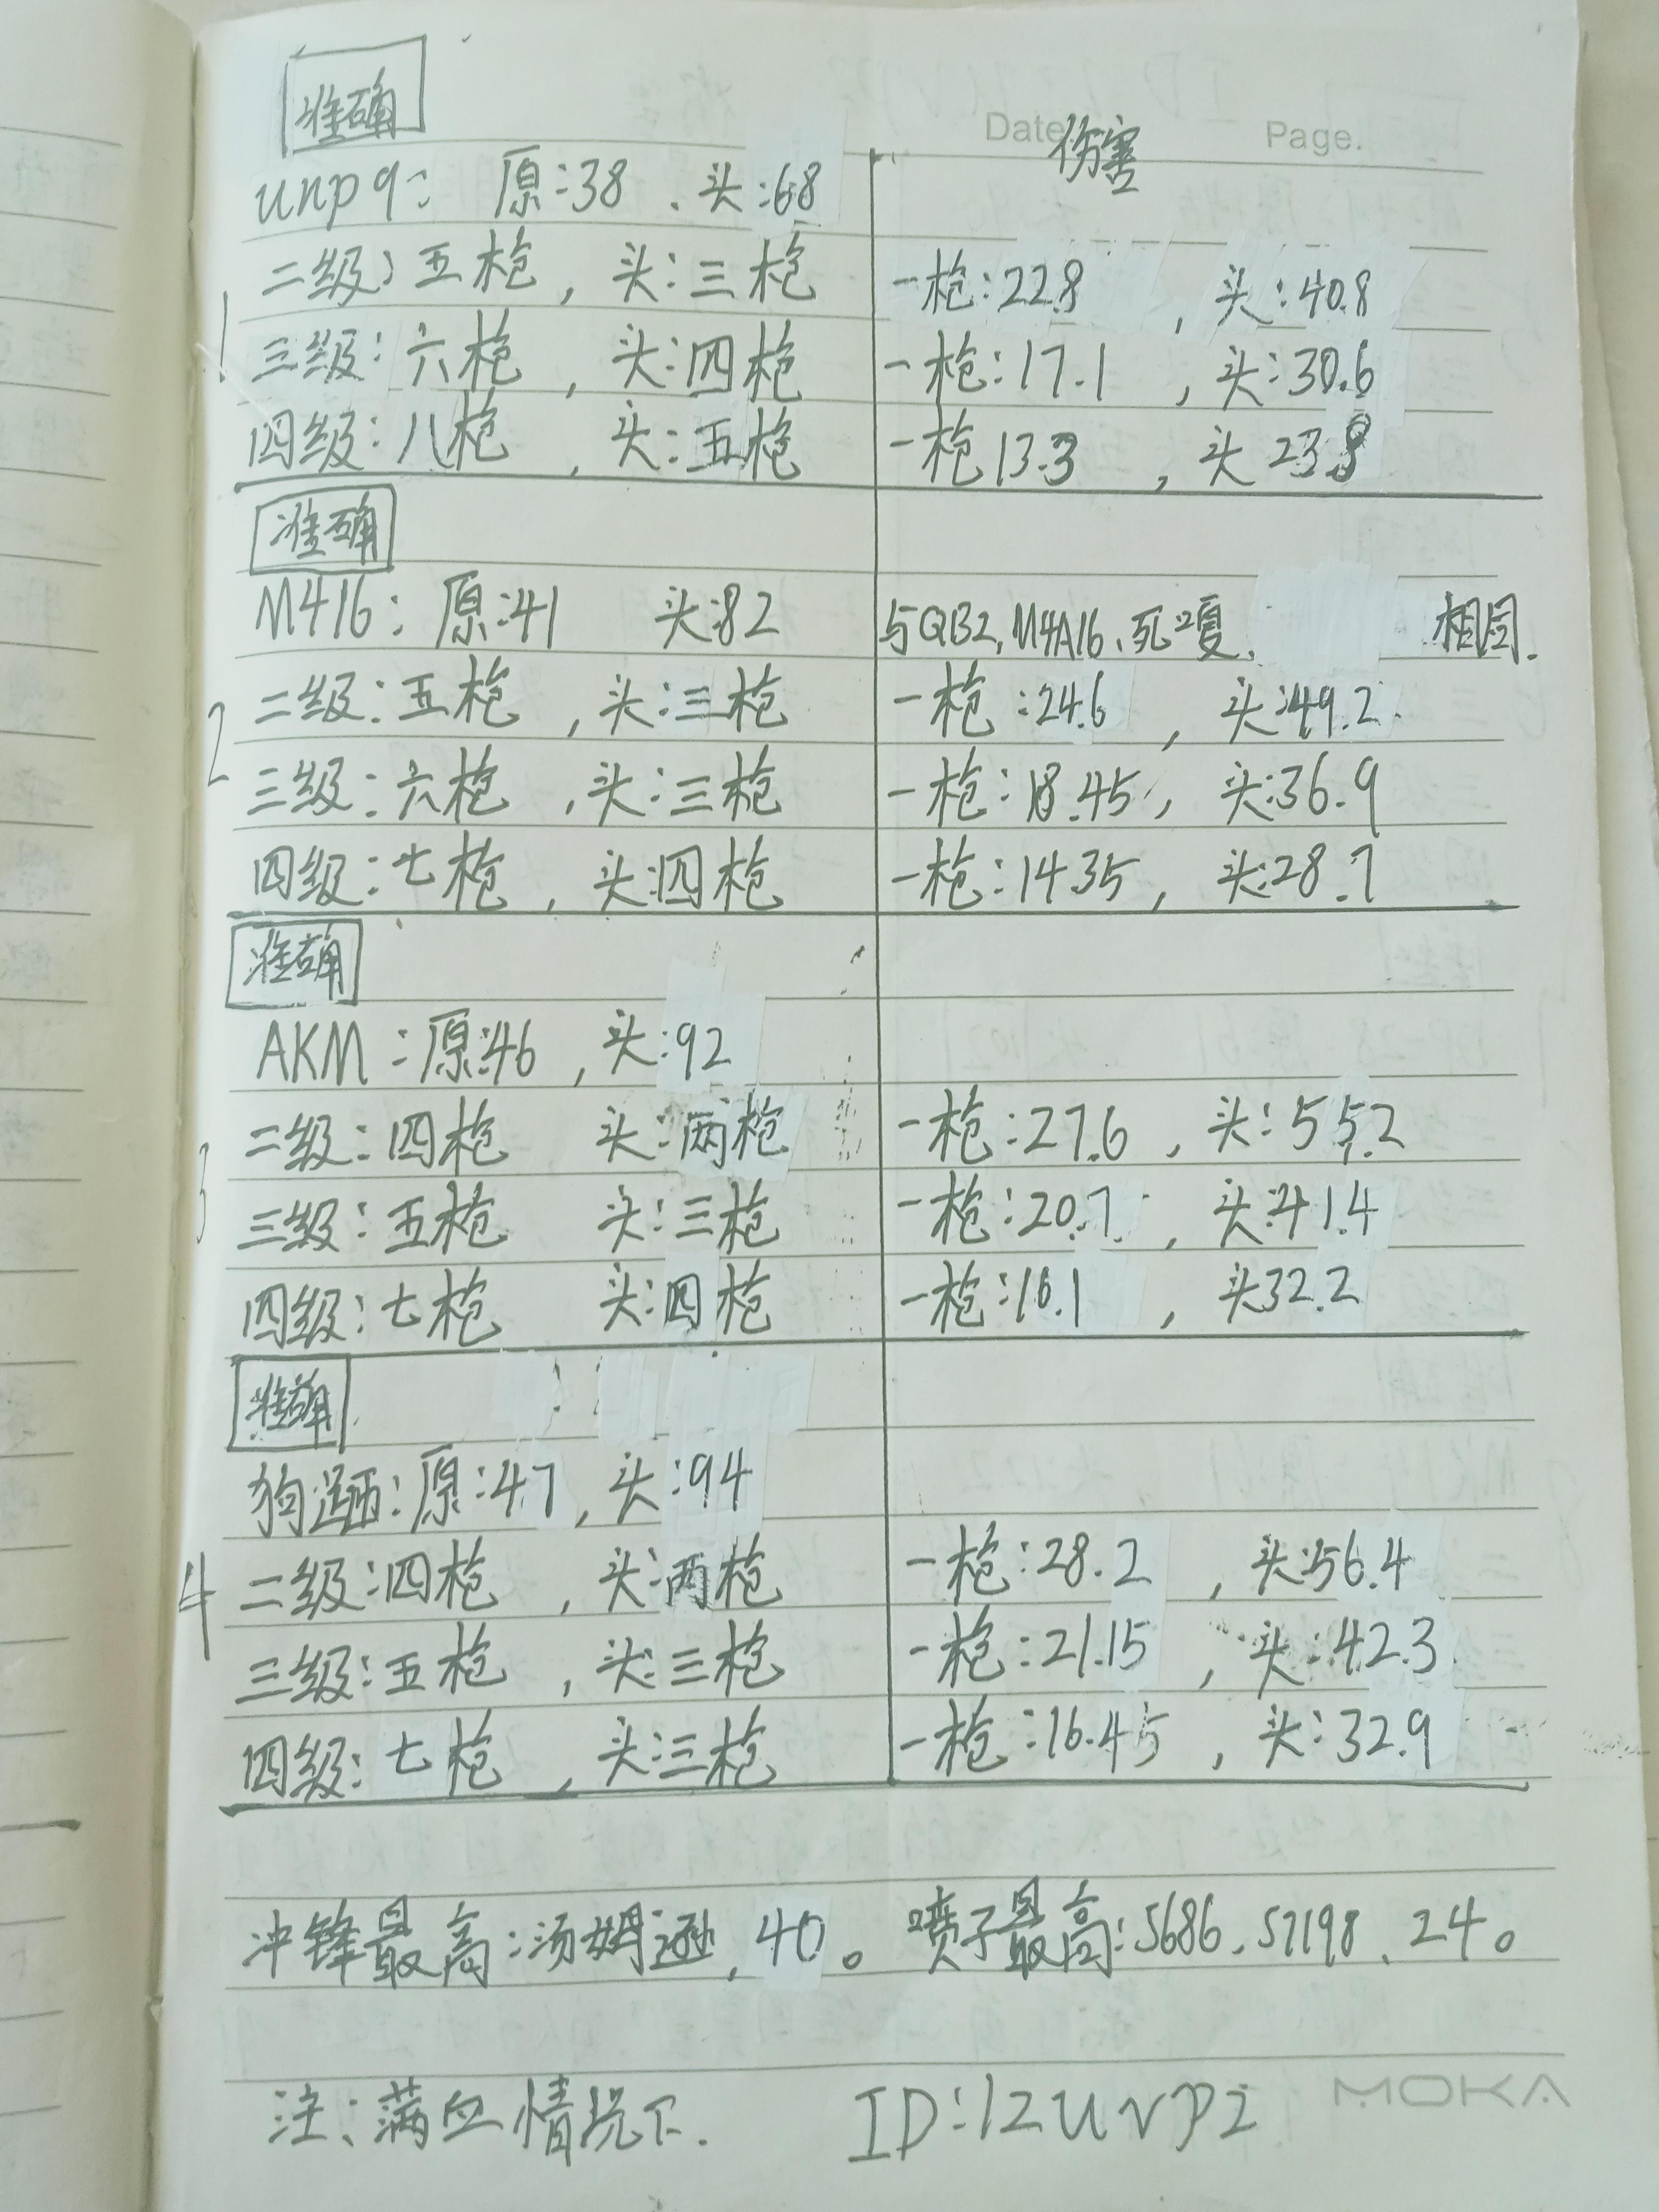 准确
Date 伤害 Page.
unp9: 原:38 、头:68
二级:五枪,头:三枪 一枪:22.8 ,头:40.8
1
三级:六枪 ,头:四枪 一枪:17.1 ,头:30.6
四级:八枪 ,头:五枪 一枪13.3 ,头23.8
准确
M416: 原:41 头:82 与QBZ,M4A16、死 夏、 相同.
二级:五枪 ,头:三枪 一枪:24.6 ,头:49.2.
2
三级:六枪 ,头:三枪 一枪:18.45,头:36.9
四级:七枪 ,头:四枪 一枪:14.35,头:28.7
准确
AKM:原:46 ,头:92
二级:四枪 头:两枪 一枪:27.6 ,头:55.2
3
三级:五枪 头:三枪 一枪:20.7.,头:41.4
四级:七枪 头:四枪 一枪:16.1 ,头32.2
准确.
狗:原:47,头:94
4 二级:四枪 ,头:两枪 一枪:28.2 ,头:56.4
三级:五枪 ,头:三枪 一枪:21.15 ,头:42.3.
四级:七枪 ,头:三枪 一枪:16.45 ,头:32.9
冲锋最高:汤姆逊,40。喷子最高:S686、S1198、24。
注:满血情况下. ID:12uvpi MOKA